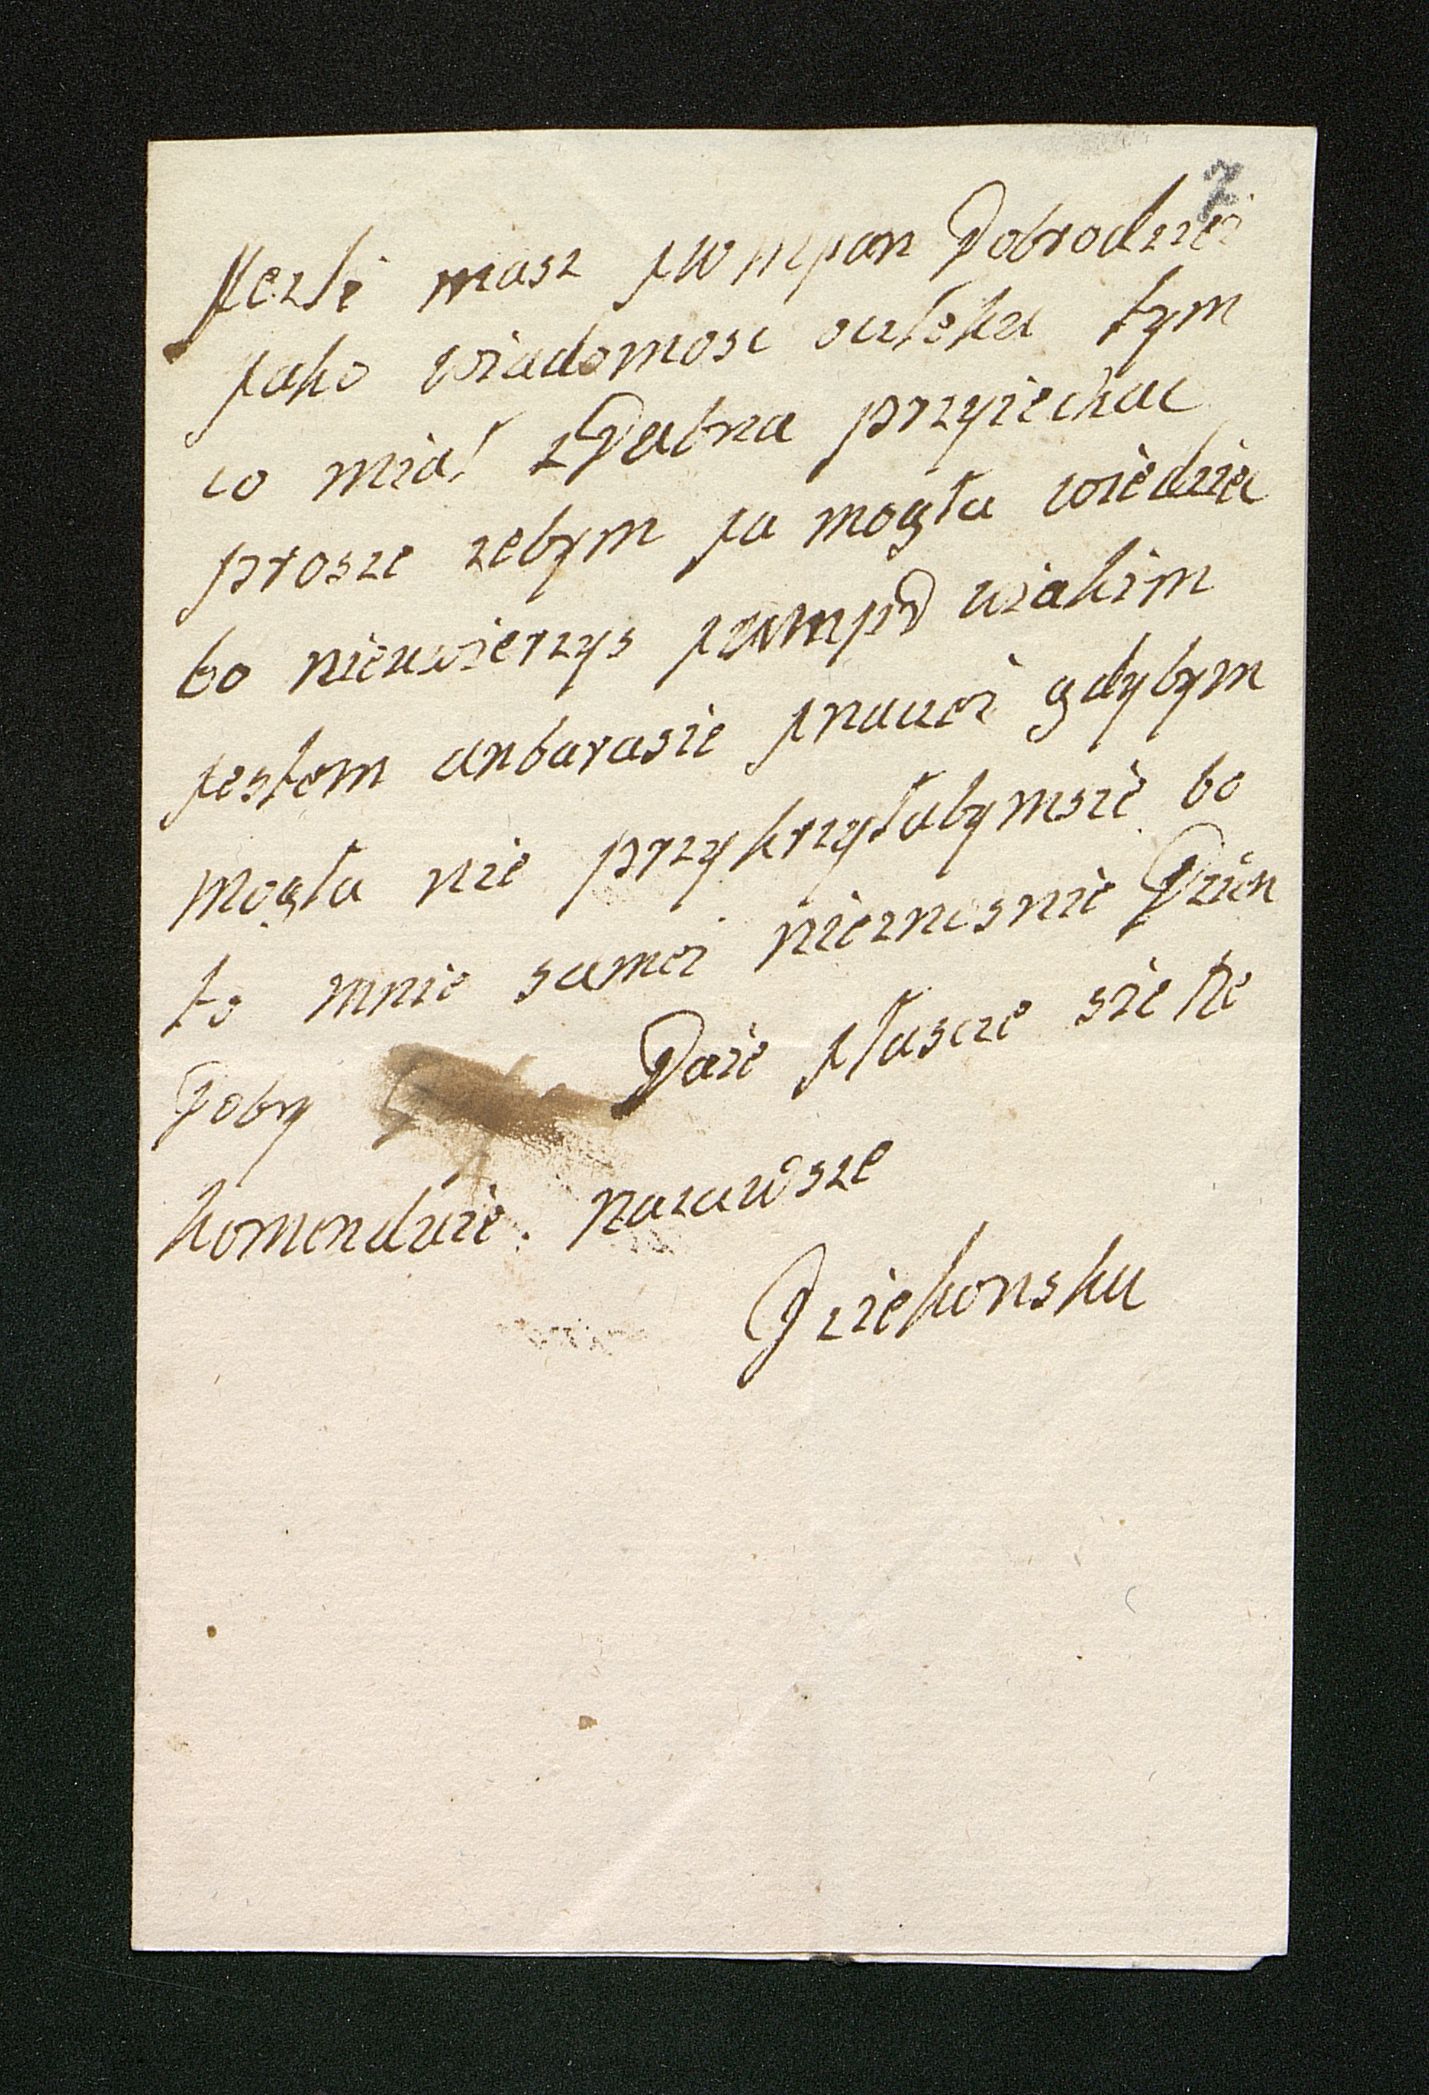 7
Jezli masz jwmpan Dobrodziei
jako wiadomosc oczleka tym
co miał zDabna przyiechac
prosze zebym ja mogła wiedziec
bo nieuwierzys jwmpD wiakim
jestem anbarasie jnaczei gdybym
mogła nie przykrzyłabymsie bo
to mnie samei nieznosnie Dzien
Dobry Daie płascze sie te
komendzie. nazawsze
Dziekonska